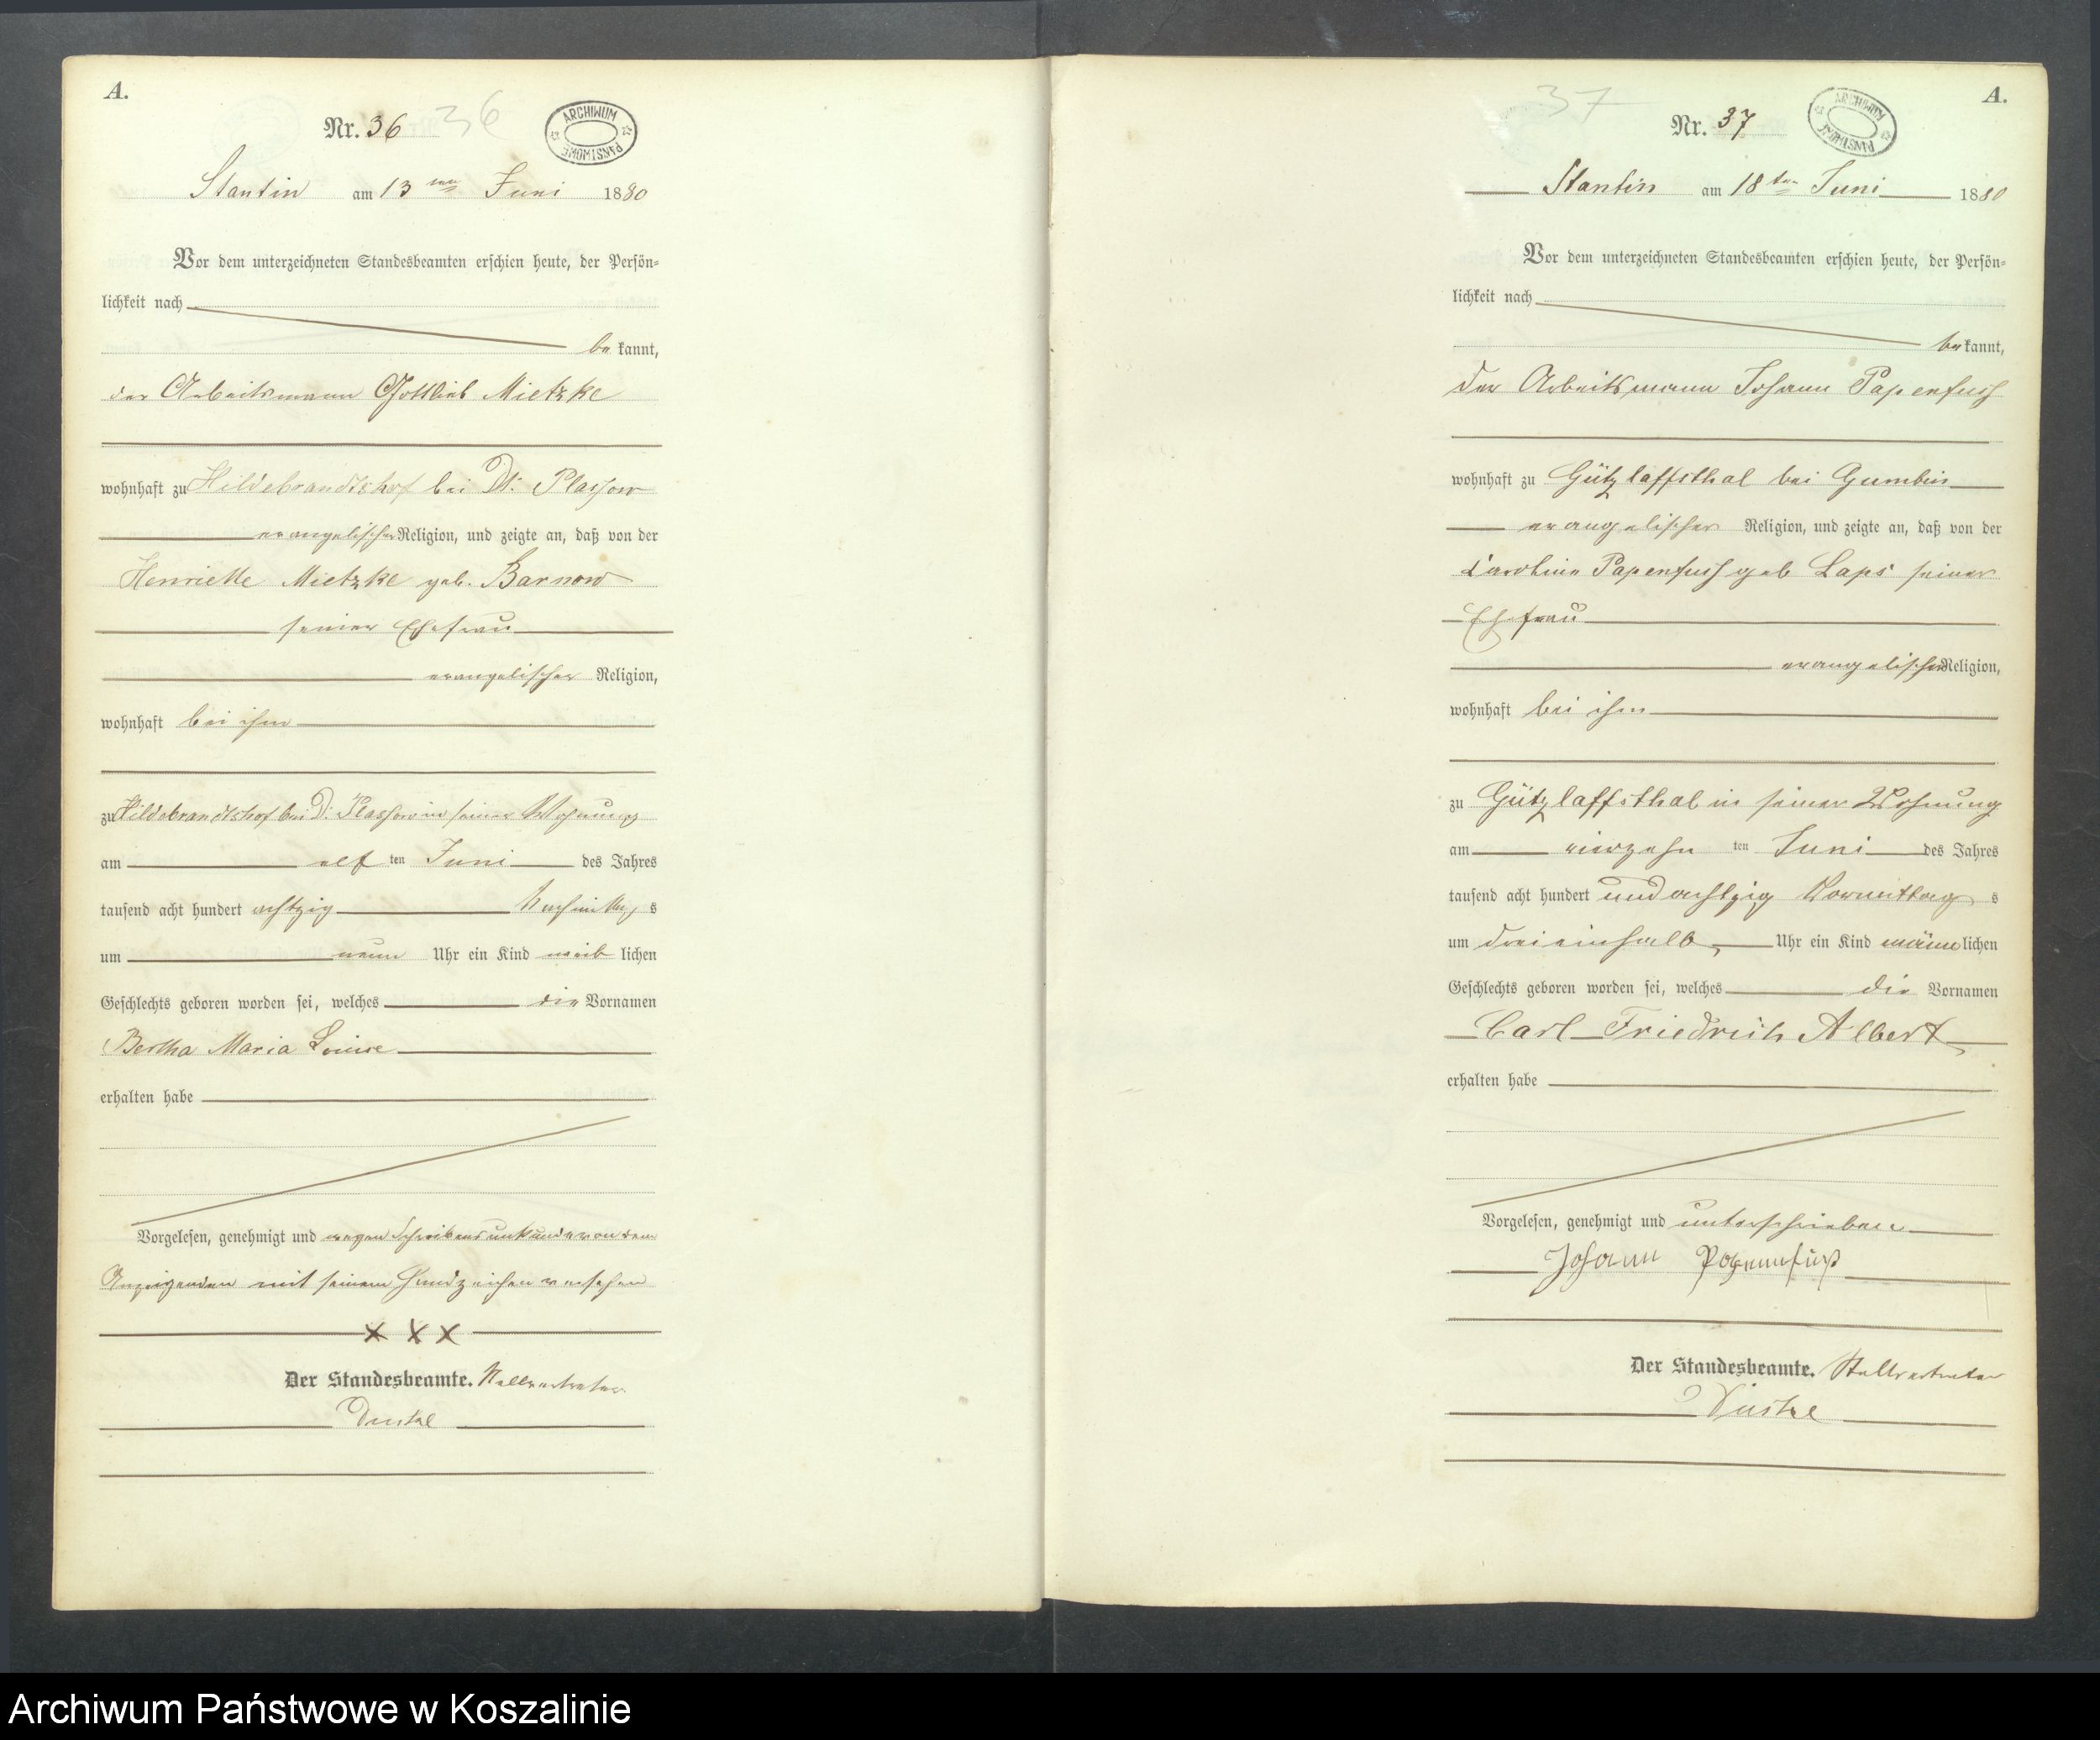 A.
Nr. 36 36
ARCHIWUM PAŃSTWOWE
Stantin am 13ten Juni 1880
Vor dem unterzeichneten Standesbeamten erschien heute, der Persön-
lichkeit nach
be kannt,
der Arbeitsmann Gottlieb Mietzke
wohnhaft zu Hildebrandtshof bei Dt. Plassow
evangelischer Religion, und zeigte an, daß von der
Henriette Mietzke geb. Barnow
seiner Ehefrau
evangelischer Religion,
wohnhaft bei ihm
zu Hildebrandtshof bei D. Plassow in seiner Wohnung
am elf ten Juni des Jahres
tausend acht hundert achtzig Nachmittag s
um neun Uhr ein Kind weib lichen
Geschlechts geboren worden sei, welches die Vornamen
Bertha Maria Louise
erhalten habe
Vorgelesen, genehmigt und wegen Schreibensunkunde von dem
Anzeigenden mit seinem Handzeichen versehen
x x x
Der Standesbeamte. Stellvertreter
A.
37
Nr. 37
ARCHIWUM PAŃSTWOWE
Stantin am 18ten Juni 1880
Vor dem unterzeichneten Standesbeamten erschien heute, der Persön-
lichkeit nach
be kannt,
der Arbeitsmann Johann Papenfuß
wohnhaft zu Gützlaffsthal bei Gumbin
evangelischer Religion, und zeigte an, daß von der
Caroline Papenfuß geb Laps seiner
Ehefrau
evangelischer Religion,
wohnhaft bei ihm
zu Gützlaffsthal in seiner Wohnung
am vierzehn ten Juni des Jahres
tausend acht hundert und achtzig Vormittag s
um drei einhalb Uhr ein Kind männ lichen
Geschlechts geboren worden sei, welches die Vornamen
Carl Friedrich Albert
erhalten habe
Vorgelesen, genehmigt und unterschrieben
Johann Papenfuß
Der Standesbeamte. Stellvertreter
Archiwum Państwowe w Koszalinie